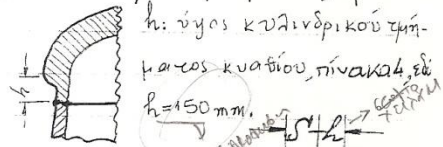 h: ύψος κυλινδρικού τμή-
ματος κυαθίου, πίνακα 4, εδώ
h = 150 mm.
S h
h